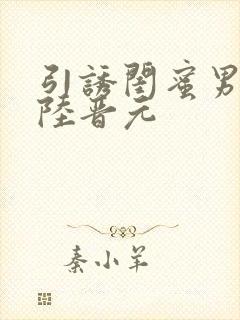 引誘閨蜜男
陸晋元
秦小羊